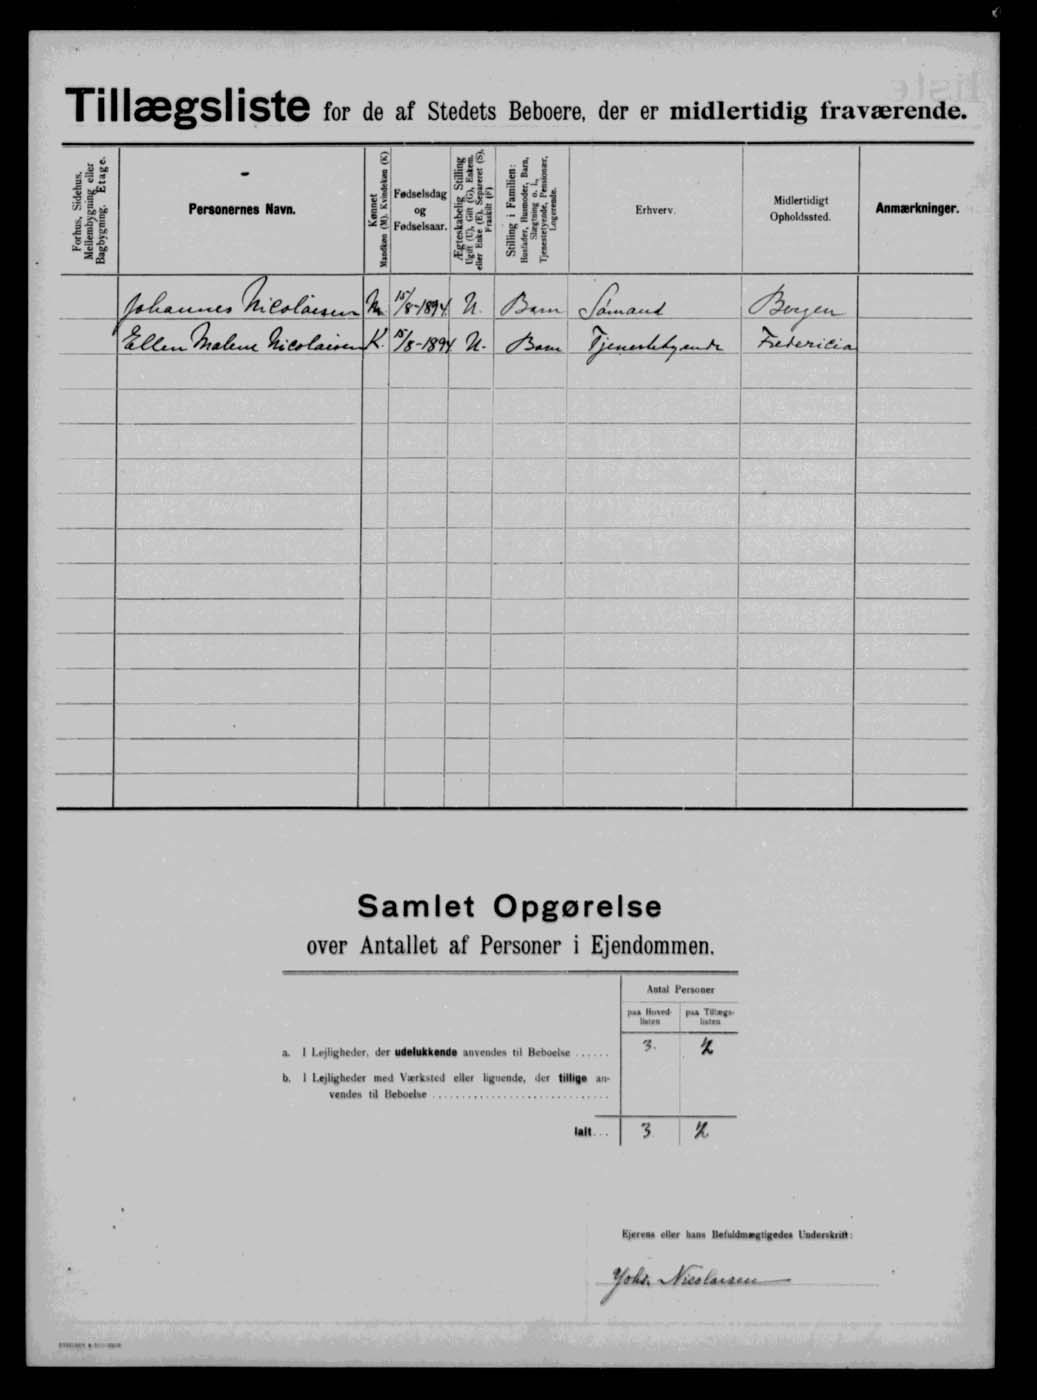 Tillægsliste for de af Stedets Beboere, der er midlertidig fraværende.
Forhus, Sidehus, Mellembygning eller Bagbygning. Etage.
Personernes Navn.
Kønnet Mandkøn (M). Kvindekøn (K)
Fødselsdag og Fødselsaar.
Ægteskabelig Stilling Ugift (U), Gift (G), Enkem. eller Enke (E), Separeret (S), Fraskilt (F)
Stilling i Familien: Husfader, Husmoder, Barn, Slægtning o. l., Tjenestetyende, Pensionær, Logerende.
Erhverv.
Midlertidigt Opholdssted.
Anmærkninger.
Johannes Nicolaisen M. 15/8-1894 U. Barn Sømand Bergen
Ellen Malene Nicolaisen K. 15/8-1894 U. Barn Tjenestetyende Fredericia
Samlet Opgørelse
over Antallet af Personer i Ejendommen.
Antal Personer
paa Hoved-listen paa Tillægs-listen
a. I Lejligheder, der udelukkende anvendes til Beboelse ...... 3. 2
b. I Lejligheder med Værksted eller lignende, der tillige an-
vendes til Beboelse ..............................
Ialt... 3 2
Ejerens eller hans Befuldmægtigedes Underskrift:
Johs. Nicolaisen